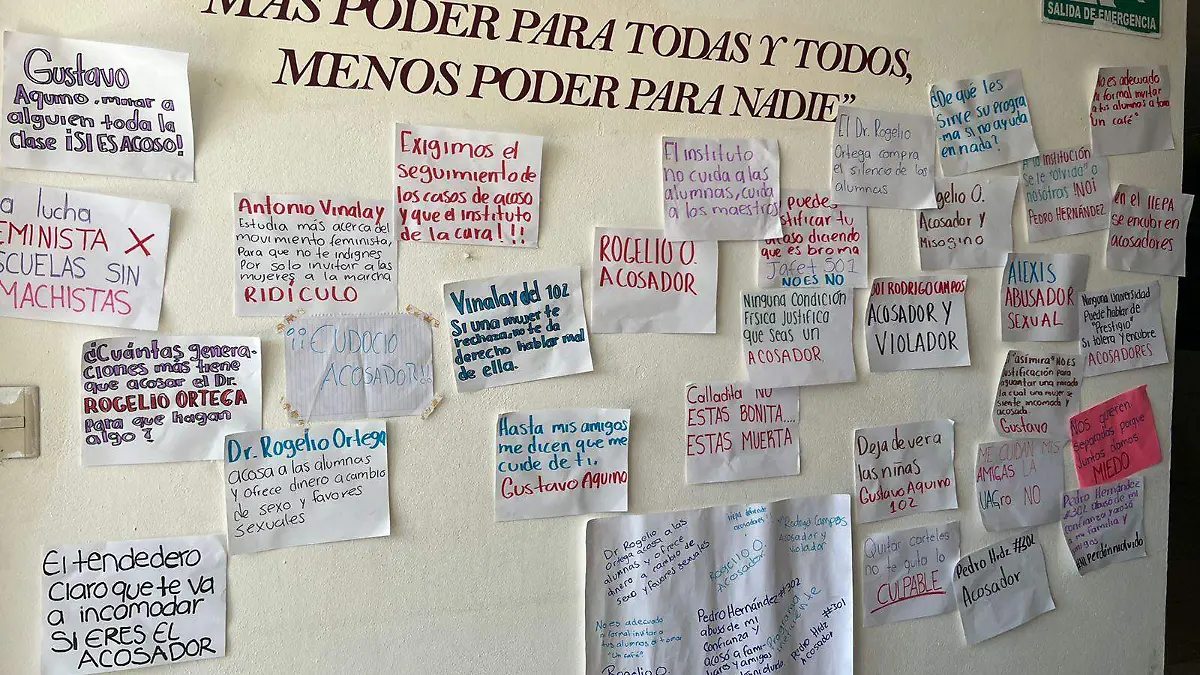 MÁS PODER PARA TODAS Y TODOS,
MENOS PODER PARA NADIE"
SALIDA DE EMERGENCIA
Gustavo
Aquino, mirar a
alguien toda la
clase ¡SI ES ACOSO!
a lucha
FEMINISTA X
ESCUELAS SIN
MACHISTAS
Antonio Vinalay
Estudia más acerca del
movimiento feminista,
Para que no te indignes
Por solo invitar a las
mujeres a la marcha
RIDÍCULO
Exigimos el
seguimiento de
los casos de acoso
y que el instituto
de la cara!!!
ROGELIO O.
ACOSADOR
El instituto
no cuida a las
alumnas, cuida
a los maestros
puedes
justificar tu
acoso diciendo
que es broma
Jafet 501
NO ES NO
El Dr. Rogelio
Ortega compra
el silencio de las
alumnas
¿De qué les
sirve su progra
-ma si no ayuda
en nada?
No es adecuado
ni formal invitar
a tus alumnas a tomar
"un café"
Rogelio O.
Acosador y
Misogino
A la institución
se le "olvida" a
nosotras ¡NO!
PEDRO HERNÁNDEZ
en el IIEPA
se encubren
acosadores
¿Cuántas genera-
ciones más tiene
que acosar el Dr.
ROGELIO ORTEGA
Para que hagan
algo?
¡¡EUDOCIO
ACOSADOR!!
Vinalay del 102
Si una mujer te
rechaza, no te da
derecho hablar mal
de ella.
Ninguna condición
física justifica
que seas un
ACOSADOR
501 RODRIGO CAMPOS
ACOSADOR Y
VIOLADOR
ALEXIS
ABUSADOR
SEXUAL
Ninguna Universidad
Puede hablar de
"Prestigio"
Si tolera y encubre
ACOSADORES
Dr. Rogelio Ortega
acosa a las alumnas
y ofrece dinero a cambio
de sexo y favores
sexuales
Hasta mis amigos
me dicen que me
cuide de ti.
Gustavo Aquino
Calladita NO
ESTAS BONITA....
ESTAS MUERTA
"asi mira" NO ES
justificación para
aguantar una mirada
la cual una mujer se
siente incomoda y
acosada
Gustavo
Nos quieren
separadas porque
juntas damos
MIEDO
Deja de ver a
las niñas
Gustavo Aquino
102
ME CUIDAN MIS
AMIGAS LA
UAGro NO
Pedro Hernández
#302 abuso de mi
confianza y acoso
a mi familia y
amigas
#NiPerdónNiolvido
El tendedero
claro que te va
a incomodar
SI ERES EL
ACOSADOR
Quitar carteles
no te quita lo
CULPABLE
Pedro Hdz #301
Acosador
Dr. Rogelio
Ortega acosa a los
alumnas y ofrece
dinero a cambio de
sexo y favores sexuales
acosadores!
"Rodrigo Campos
Acosador y
violador
Rogelio O.
Acosador
No es adecuado
ni formal invitar a
tus alumnas a tomar
"Un café"
Pedro Hernández #302
abuso de mi
confianza y
acoso a fami-
liares y amigos
Pedro Hdz #301
Acosador
Rogelio O.